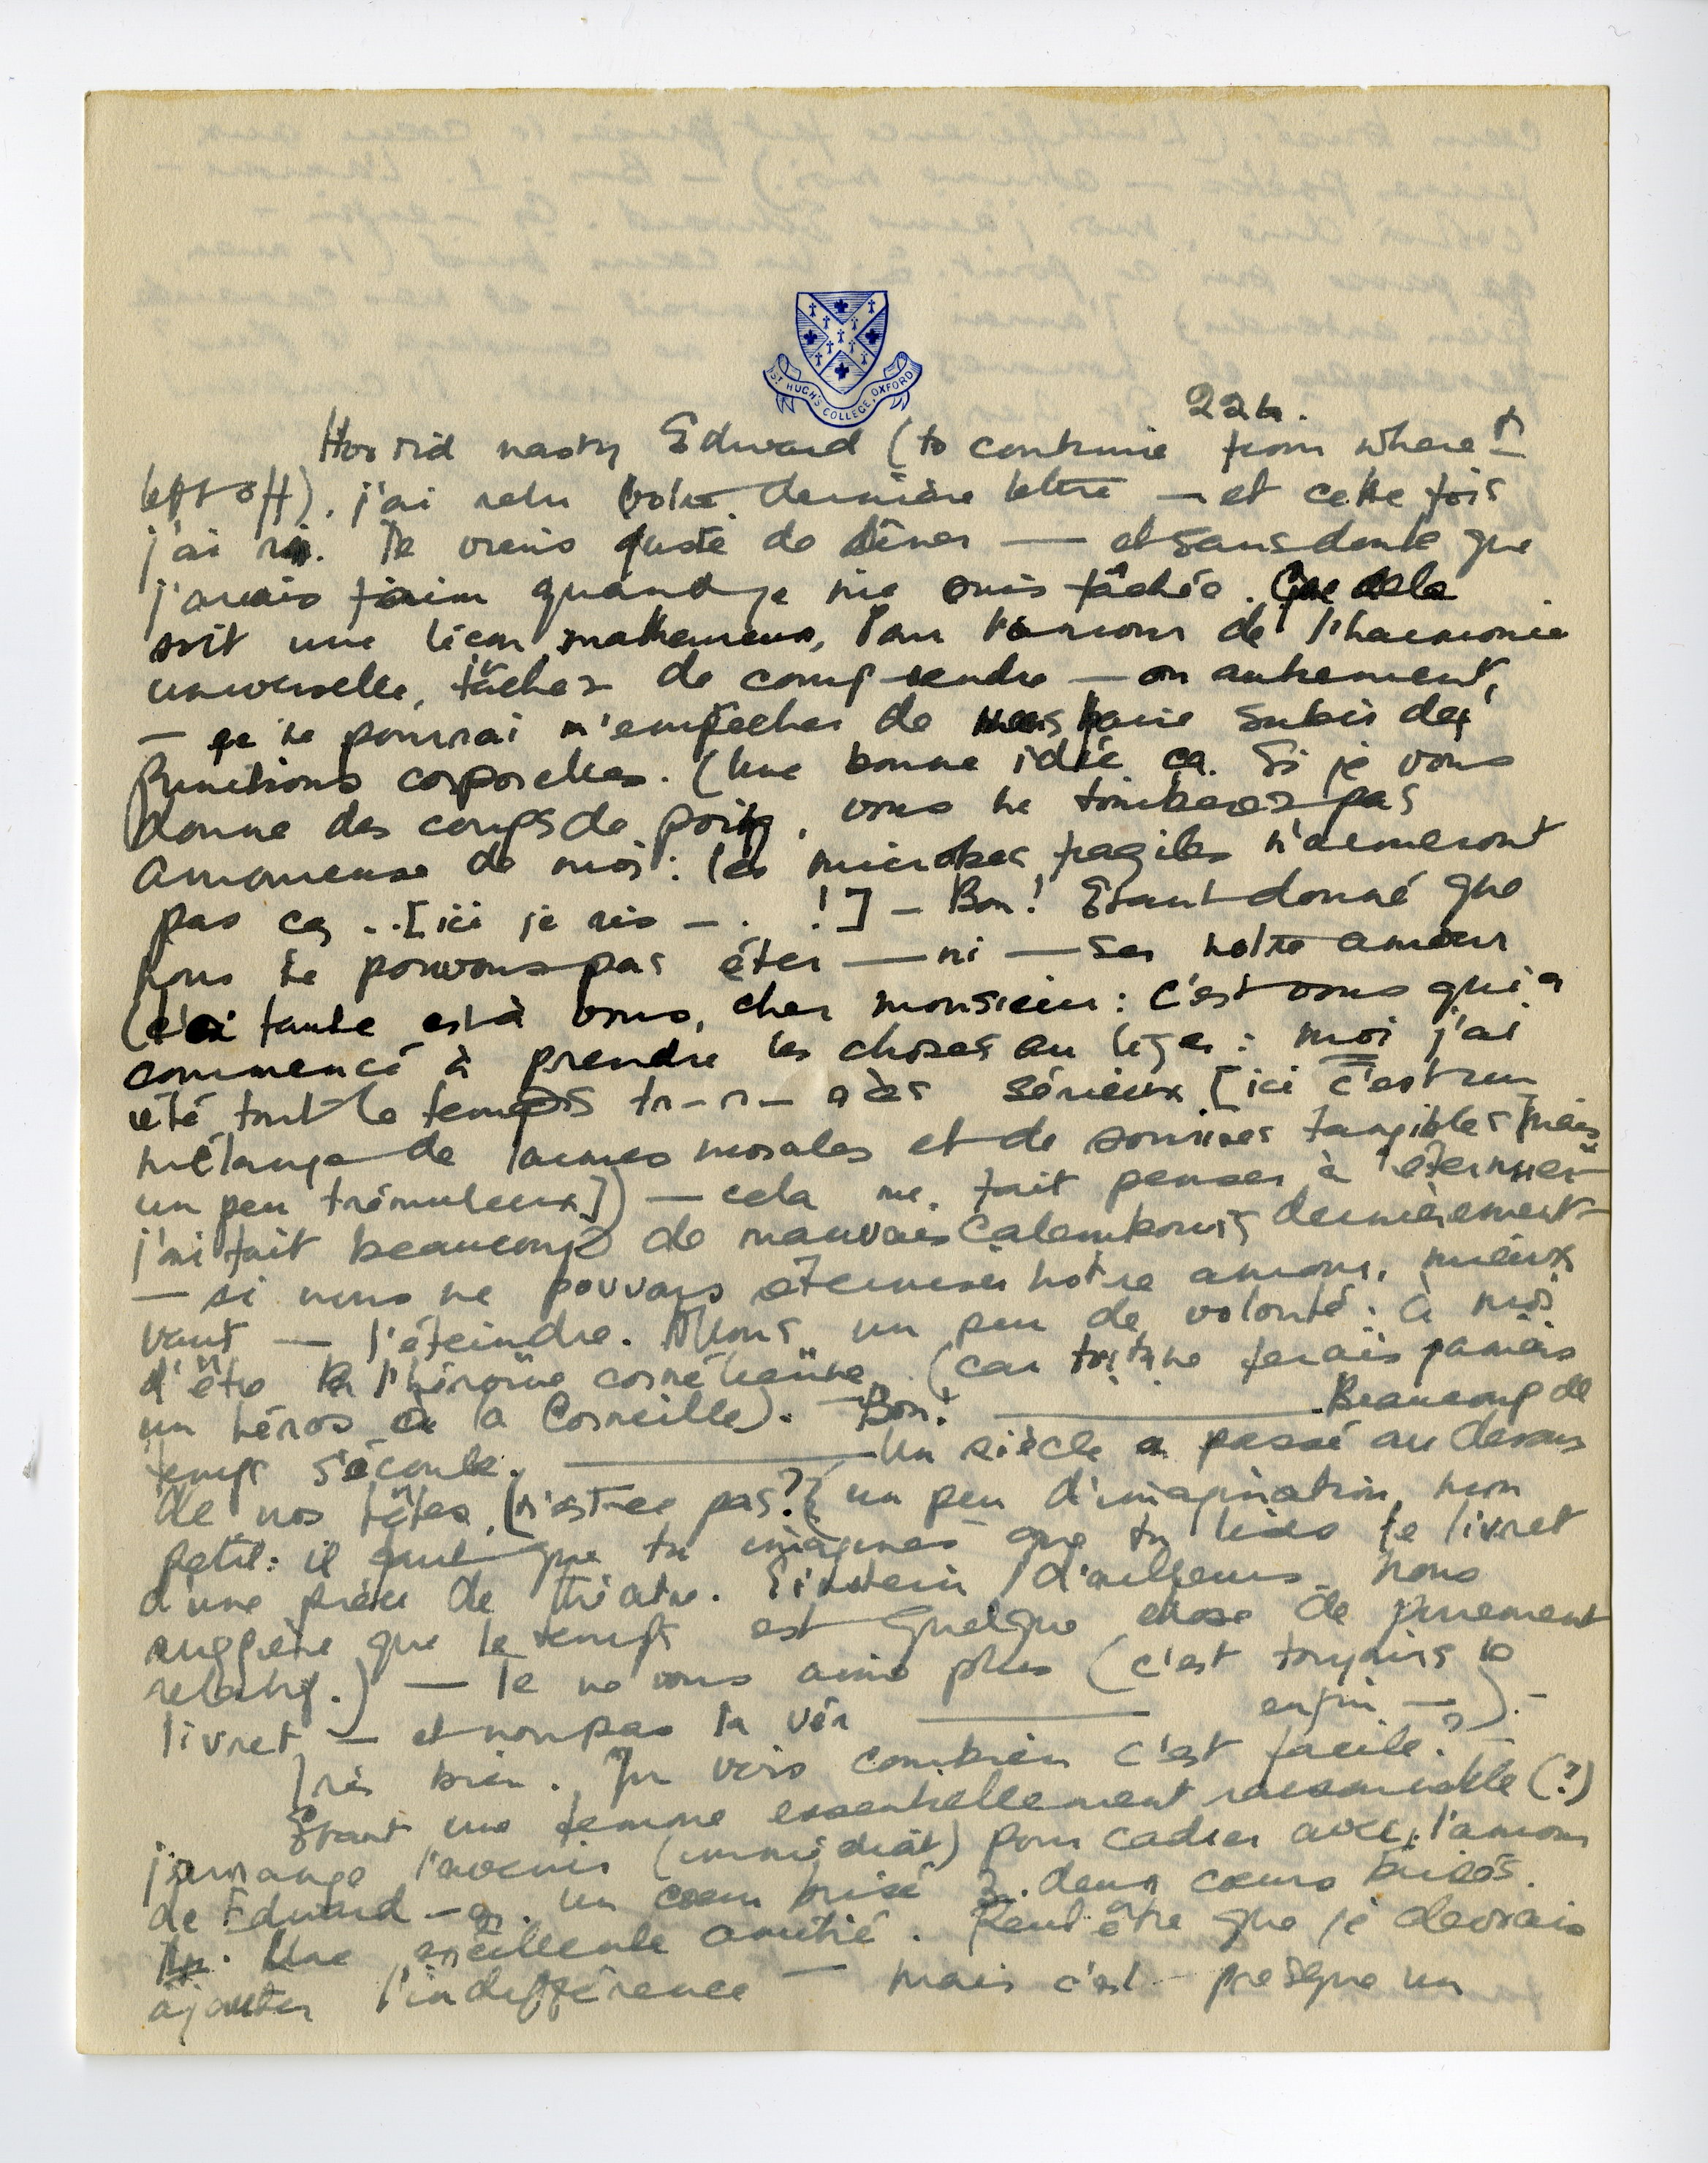 ST HUGH'S COLLEGE, OXFORD
22h.
Horrid nasty Edward (to continue from where I
left off). j'ai relu votre dernière lettre — et cette fois
j'ai ri. Je viens juste de dîner — et sans doute que
j'avais faim quand je me suis fâchée. Que cela
soit une leçon, malheureux, Pour l'amour de l'harmonie
universelle, tâchez de comprendre — ou autrement,
— je ne pourrai m'empêcher de vous faire subir des
punitions corporelles. (Une bonne idée ça. Si je vous
donne des coups de poing, vous ne tomberez pas
amoureuse de moi: les microbes fragiles n'aimeront
pas ça ..[ici je ris — . . !] — Bon! Etant donné que
nous ne pouvons pas éter — ni — ser notre amour
(la faute est à vous, cher monsieur: c'est vous qui a
commencé à prendre les choses au léger: moi j'ai
été tout le temps tr-r- rès sérieux [ici c'est un
mélange de larmes morales et de sourires tangibles mais
un peu trémuleux]) — cela me fait penser à "éternuer"
j'ai fait beaucoup de mauvais calembours dernièrement —
— si nous ne pouvons éterniser notre amour, mieux
vaut — l'éteindre. Allons, un peu de volonté: à moi
d'être l'héroïne cornélienne. (car toi tu ne ferais jamais
un héros à la Corneille). — Bon! — Beaucoup de
temps s'écoule. — Un siècle a passé au dessus
de nos têtes, (n'est-ce pas? (un peu d'imagination, mon
petit: il faut que tu imagines que tu lises le livret
d'une pièce de théâtre. Einstein d'ailleurs nous
suggère que le temps est quelque chose de purement
relatif.) — Je ne vous aime plus (c'est toujours le
livret — et non pas la vér — enfin —).
Très bien. Tu vois combien c'est facile? —
Etant une femme essentiellement raisonnable (?)
j'arrange l'avenir (immédiat) pour cadrer avec 1. l'amour
de Edward — a. un coeur brisé 3. deux coeurs brisés.
4. Une excellente amitié. Peut être que je devrais
ajouter l'indifférence — mais c'est presque un